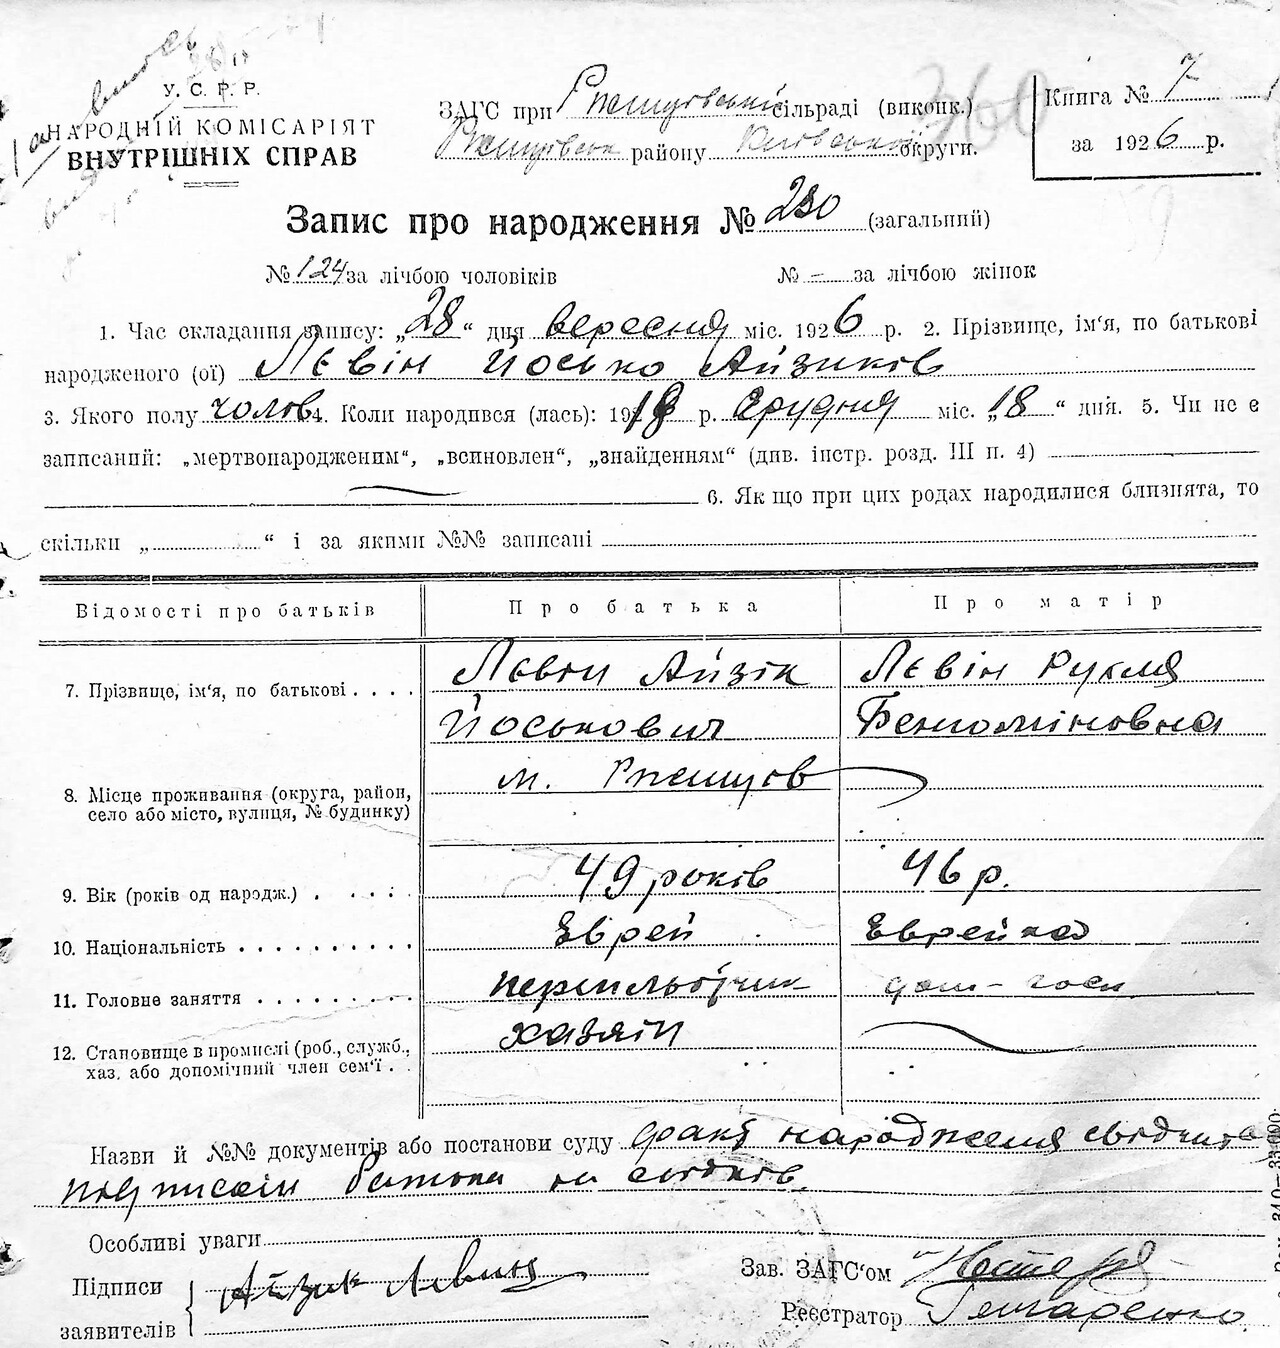 У. С. Р. Р.
НАРОДНІЙ КОМІСАРІЯТ
ВНУТРІШНІХ СПРАВ
ЗАГС при Ржищівській сільраді (виконк.)
Ржищівськ району Київської округи.
360
Книга № 7
за 1926 р.
Запис про народження № 230 (загальний)
№ 124 за лічбою чоловіків № – за лічбою жінок
1. Час складання запису: „28“ дня вересня міс. 1926 р. 2. Прізвище, ім'я, по батькові
народженого (ої) Лєвін Йосько Айзиков
3. Якого полу чолов 4. Коли народився (лась): 19 р. Грудня міс. „18“ дня. 5. Чи не є
записаний: „мертвонародженим“, „всиновлен“, „знайденням“ (див. інстр. розд. III п. 4)
6. Як що при цих родах народилися близнята, то
скільки „ “ і за якими №№ записані
Відомості про батьків Про батька Про матір
7. Прізвище, ім'я, по батькові . . . . Лєвін Айзік Лєвін Рухля
Йоськович Бенюміновна
м. Ржищів
8. Місце проживання (округа, район,
село або місто, вулиця, № будинку)
9. Вік (років од народж.) . . . . . 49 років 46 р.
10. Національність . . . . . . . . . . Еврей Еврейка
11. Головне заняття . . . . . . . . . перепльотчик дом-госп
12. Становище в промислі (роб., служб., хазяїн
хаз. або допомічний член сем'ї . .
Назви й №№ документів або постанови суду факт народження свідчать
підписами батька та свідків.
Особливі уваги
Підписи
заявителів
Айзик Левин
Зав. ЗАГС'ом
Реєстратор Гончаренко